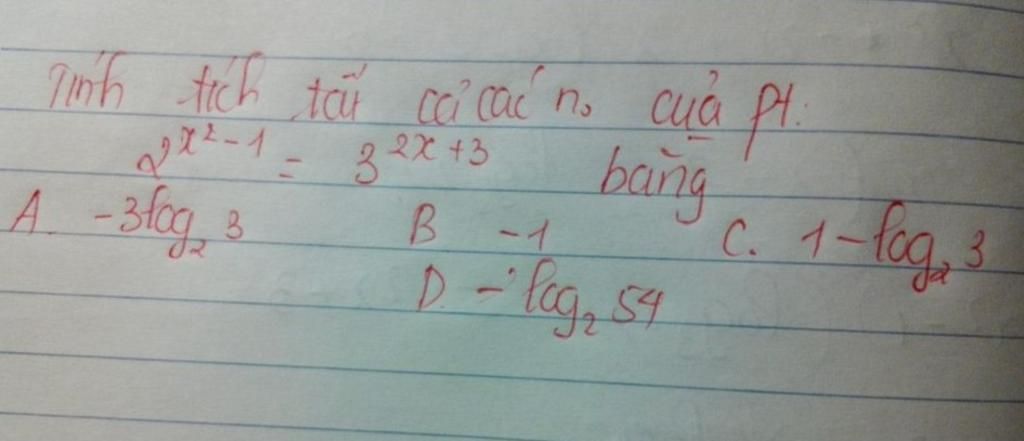 Tính tích tất cả các n₀ của pt:
2^{x^2-1} = 3^{2x+3} bằng
A. -3log₂3 B -1 C. 1-log₂3
D. -log₂54